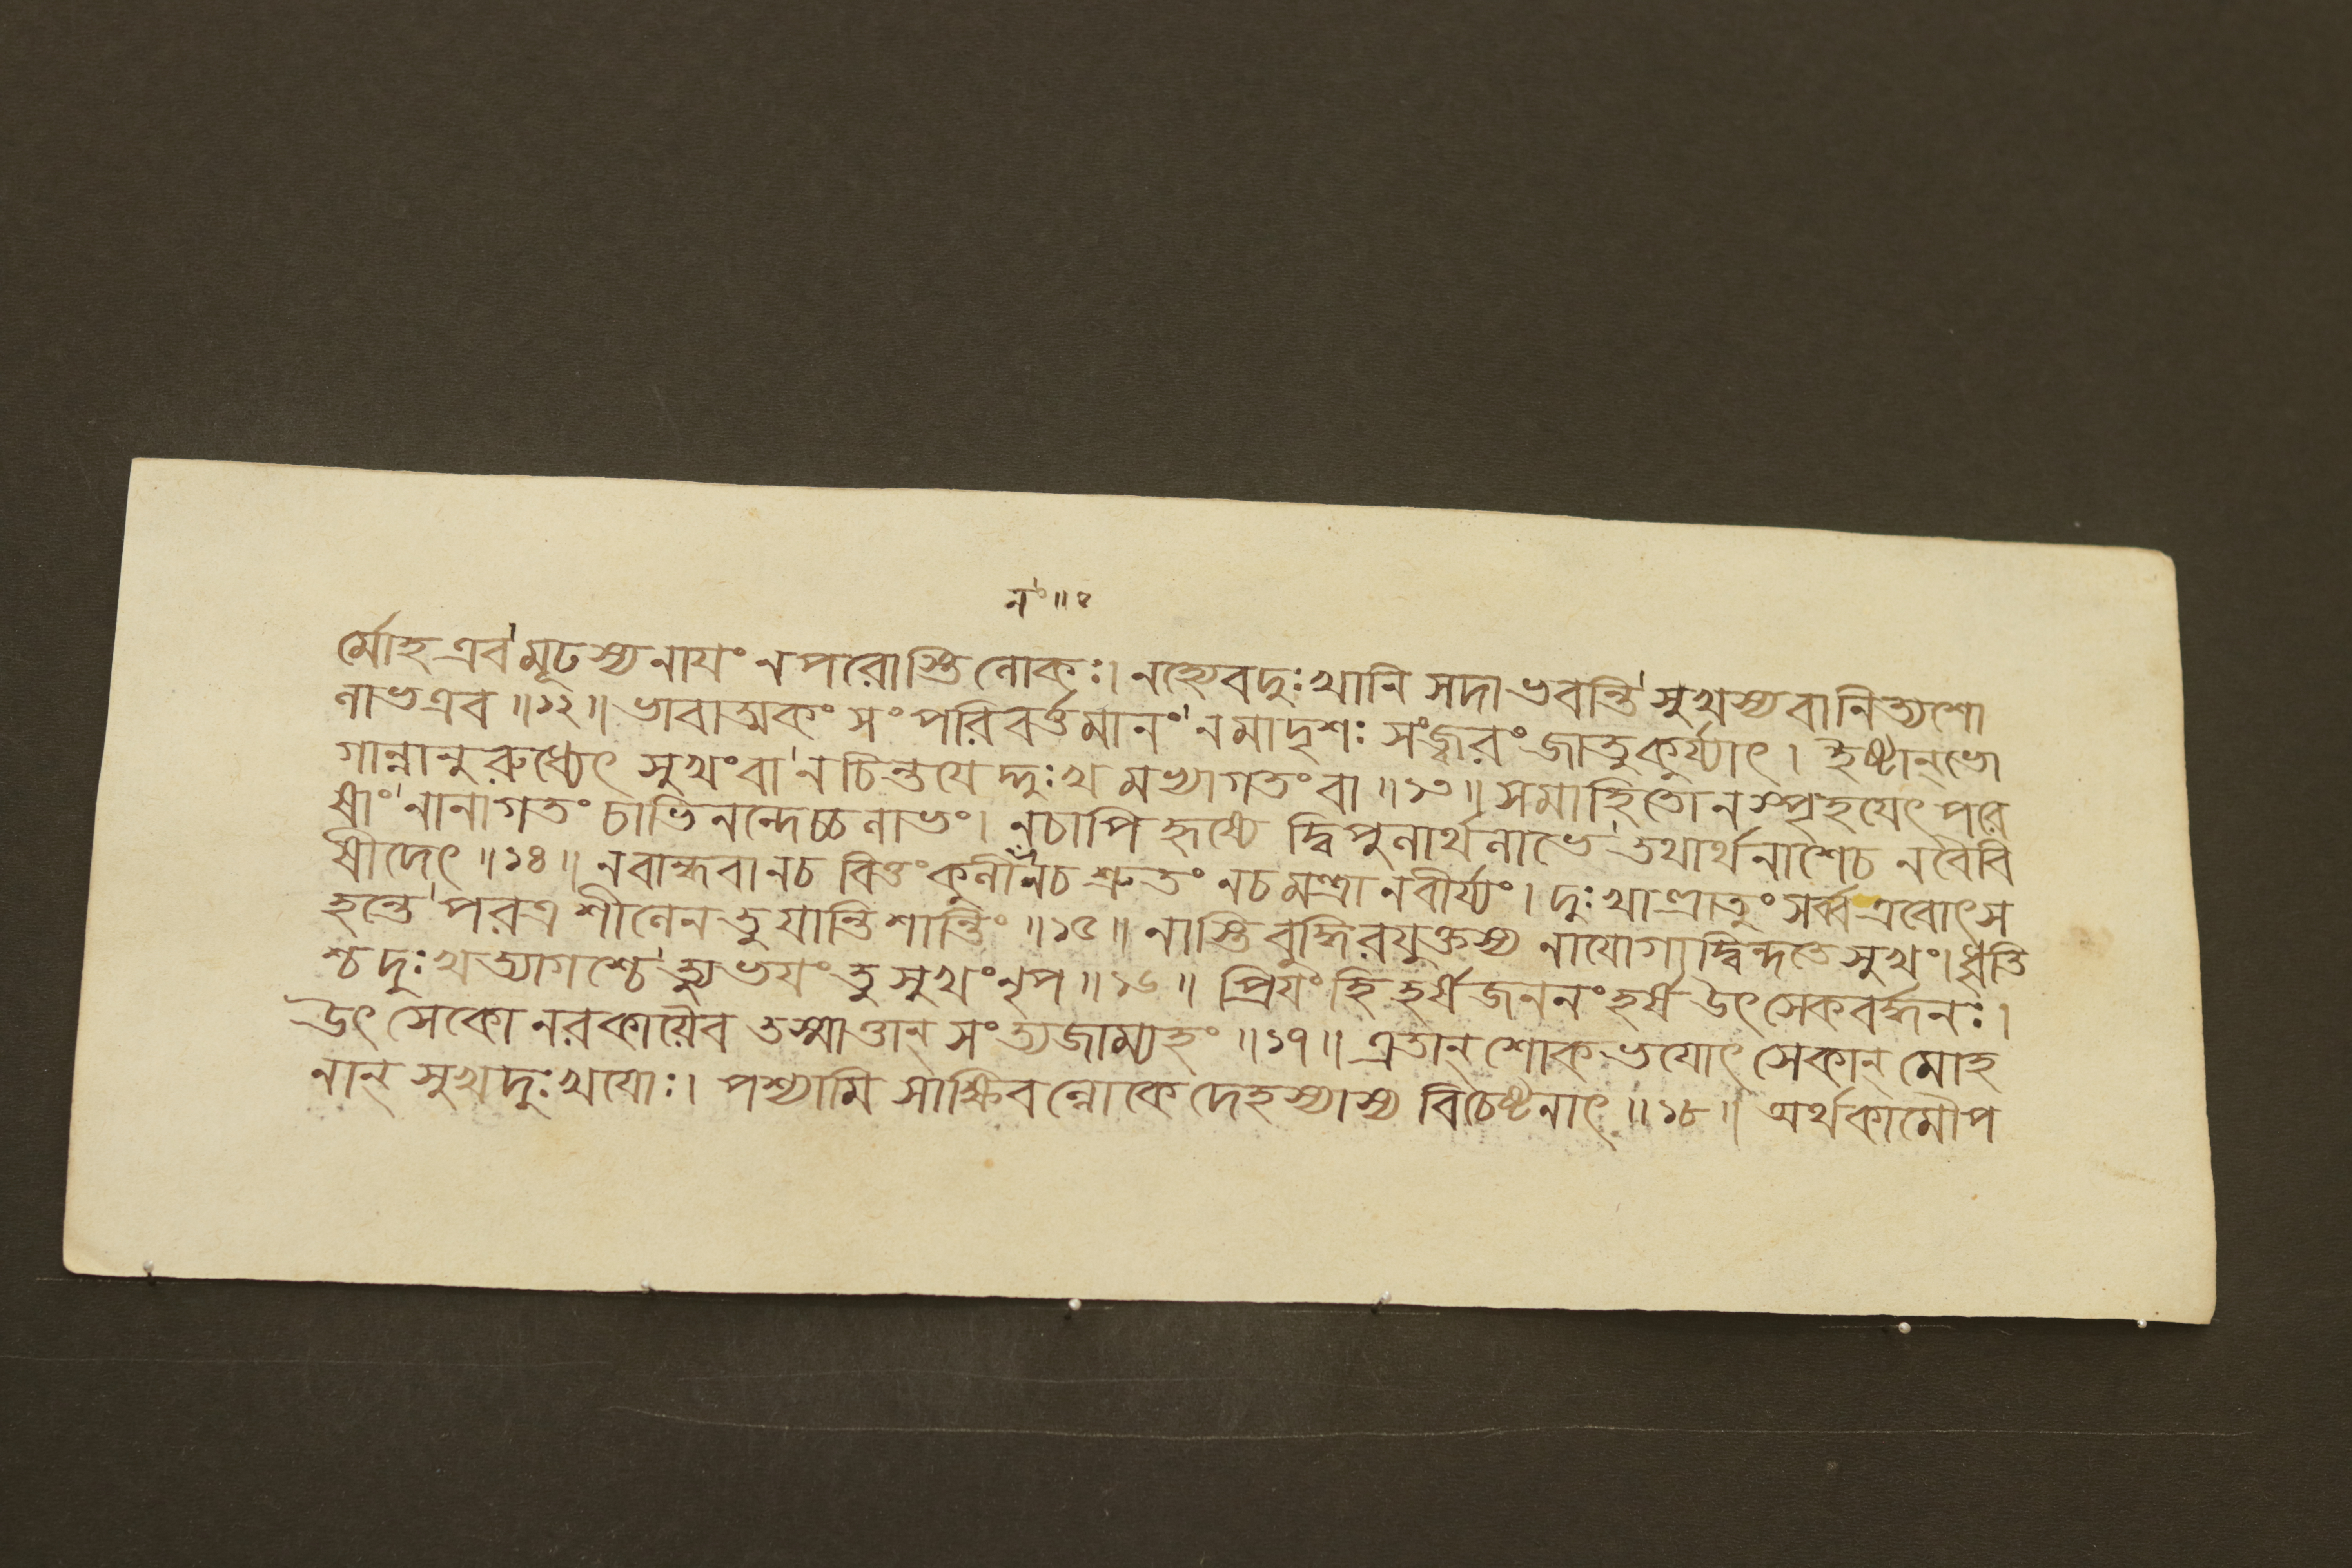 নং॥৫
র্মোহ এব মূঢস্য নাযং ন পরোস্তি লোকঃ। নহ্যেবদুঃখানি সদা ভবন্তি সুখস্য বা নিত্যশো
লাভ এব ॥১২॥ ভাবাত্মকং সংপরিবর্ত্তমানং ন মাদৃশঃ সংজ্বরং জাতু কুর্য্যাৎ। ইষ্টান্ ভো
গান্নানুরুধ্যেৎ সুখং বা ন চিন্তযেদ্দুঃখমভ্যাগতং বা ॥১৩॥ সমাহিতো ন স্পৃহযেৎ পরে
ষাং নানাগতং চাভিনন্দেচ্চ লাভং। ন চাপি হৃষ্যে দ্বিপুলার্থলাভে তথার্থনাশে চ ন বৈ বি
ষীদেৎ ॥১৪॥ ন বান্ধবা ন চ বিত্তং কুলীনং ন চ শ্রুতং ন চ মন্ত্রা ন বীর্য্যং। দুঃখাত্ত্রাতুং সর্ব্ব এবোৎস
হন্তে পরত্র শীলেন তু যান্তি শান্তিং ॥১৫॥ নাস্তি বুদ্ধিরযুক্তস্য নাযোগাদ্বিন্দতে সুখং। ধৃতি
শ্চ দুঃখত্যাগশ্চে ত্যুভযং তু সুখং নৃপ ॥১৬॥ প্রিযং হি হর্ষজননং হর্ষ উৎসেকবর্দ্ধনঃ।
উৎসেকো নরকাযৈব তস্মাত্তান্ সংত্যজাম্যহং ॥১৭॥ এতান্ শোকভযোৎসেকান্ মোহ
নান্ সুখদুঃখযোঃ। পশ্যামি সাক্ষিবল্লোকে দেহস্যাস্য বিচেষ্টনাৎ ॥১৮॥ অর্থকামৌ প